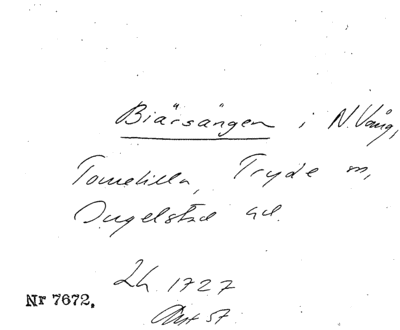 Biärsängen i N. Vång,
Tomelilla, Tryde sn,
Ingelstad hd.
Lh 1727
Akt 57
Nr 7672.